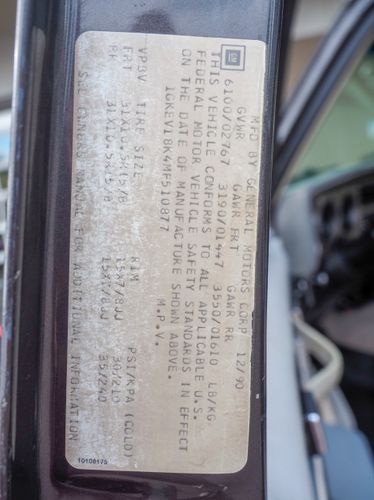 GM
MFD BY GENERAL MOTORS CORP 12/90
GVWR GAWR FRT GAWR RR
6100/02767 3190/01447 3550/01610 LB/KG
THIS VEHICLE CONFORMS TO ALL APPLICABLE U.S.
FEDERAL MOTOR VEHICLE SAFETY STANDARDS IN EFFECT
ON THE DATE OF MANUFACTURE SHOWN ABOVE.
1GKEV18K4MF510877 M.P.V.
TIRE SIZE RIM PSI/KPA (COLD)
FRT 31X10.5R15/B 15X7/8JJ
RR 31X10.5R15/B 15X7/8JJ 35/240
SEE OWNERS MANUAL FOR ADDITIONAL INFORMATION
10108175